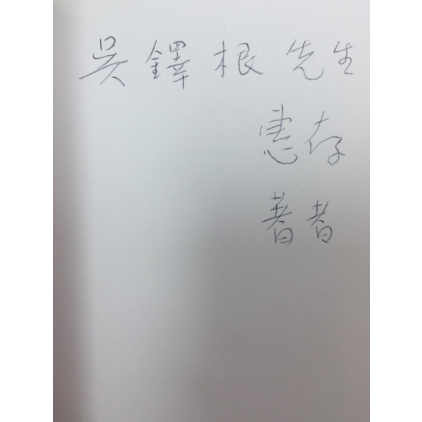 吴鐸根先生
惠存
著者